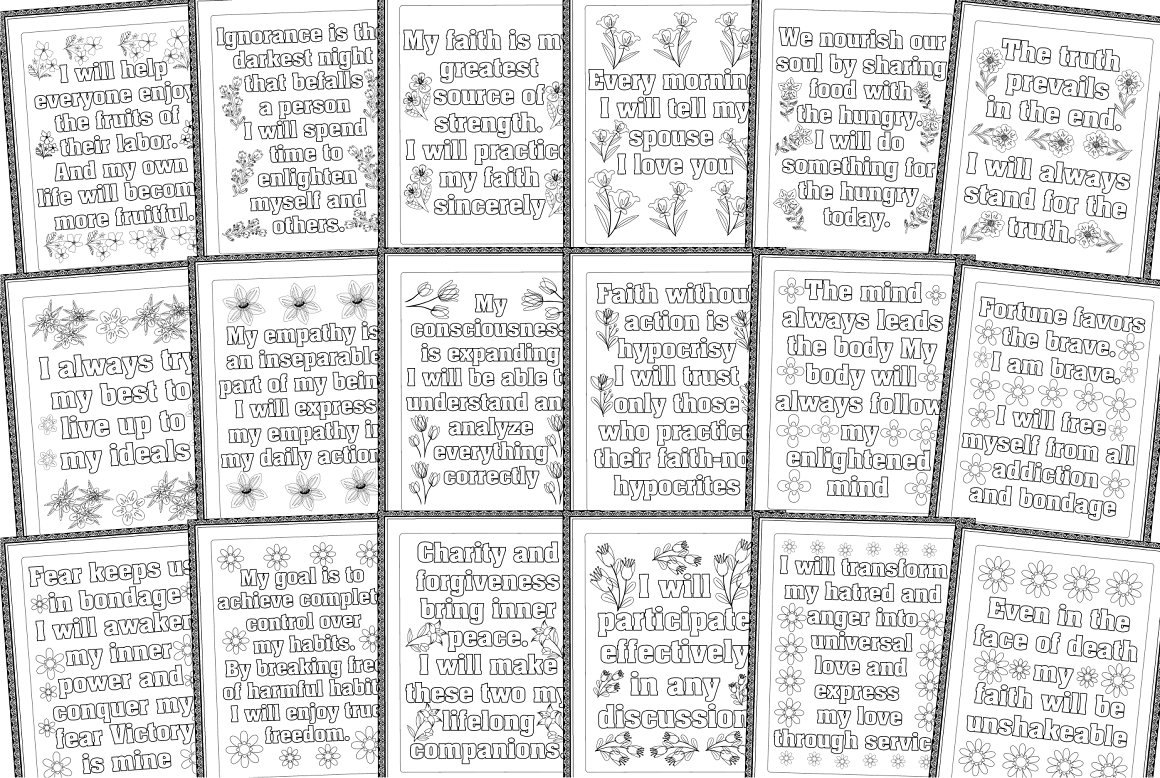 I will help
everyone enjoy
the fruits of
their labor.
And my own
life will becom
more fruitful.
Ignorance is th
darkest night
that befalls
a person
I will spend
time to
enlighten
myself and
others.
My faith is m
greatest
source of
strength.
I will practic
my faith
sincerely
Every mornin
I will tell my
spouse
I love you
We nourish our
soul by sharing
food with
the hungry.
I will do
something for
the hungry
today.
The truth
prevails
in the end.
I will always
stand for the
truth.
I always try
my best to
live up to
my ideals
My empathy is
an inseparable
part of my bein
I will express
my empathy in
my daily action
My
consciousness
is expanding
I will be able t
understand an
analyze
everything
correctly
Faith without
action is
hypocrisy
I will trust
only those
who practice
their faith-no
hypocrites
The mind
always leads
the body My
body will
always follow
my
enlightened
mind
Fortune favors
the brave.
I am brave.
I will free
myself from all
addiction
and bondage
Fear keeps us
in bondage
I will awaken
my inner
power and
conquer my
fear Victory
is mine
My goal is to
achieve complet
control over
my habits.
By breaking free
of harmful habit
I will enjoy true
freedom.
Charity and
forgiveness
bring inner
peace.
I will make
these two my
lifelong
companions.
I will
participate
effectively
in any
discussion
I will transform
my hatred and
anger into
universal
love and
express
my love
through servic
Even in the
face of death
my
faith will be
unshakeable